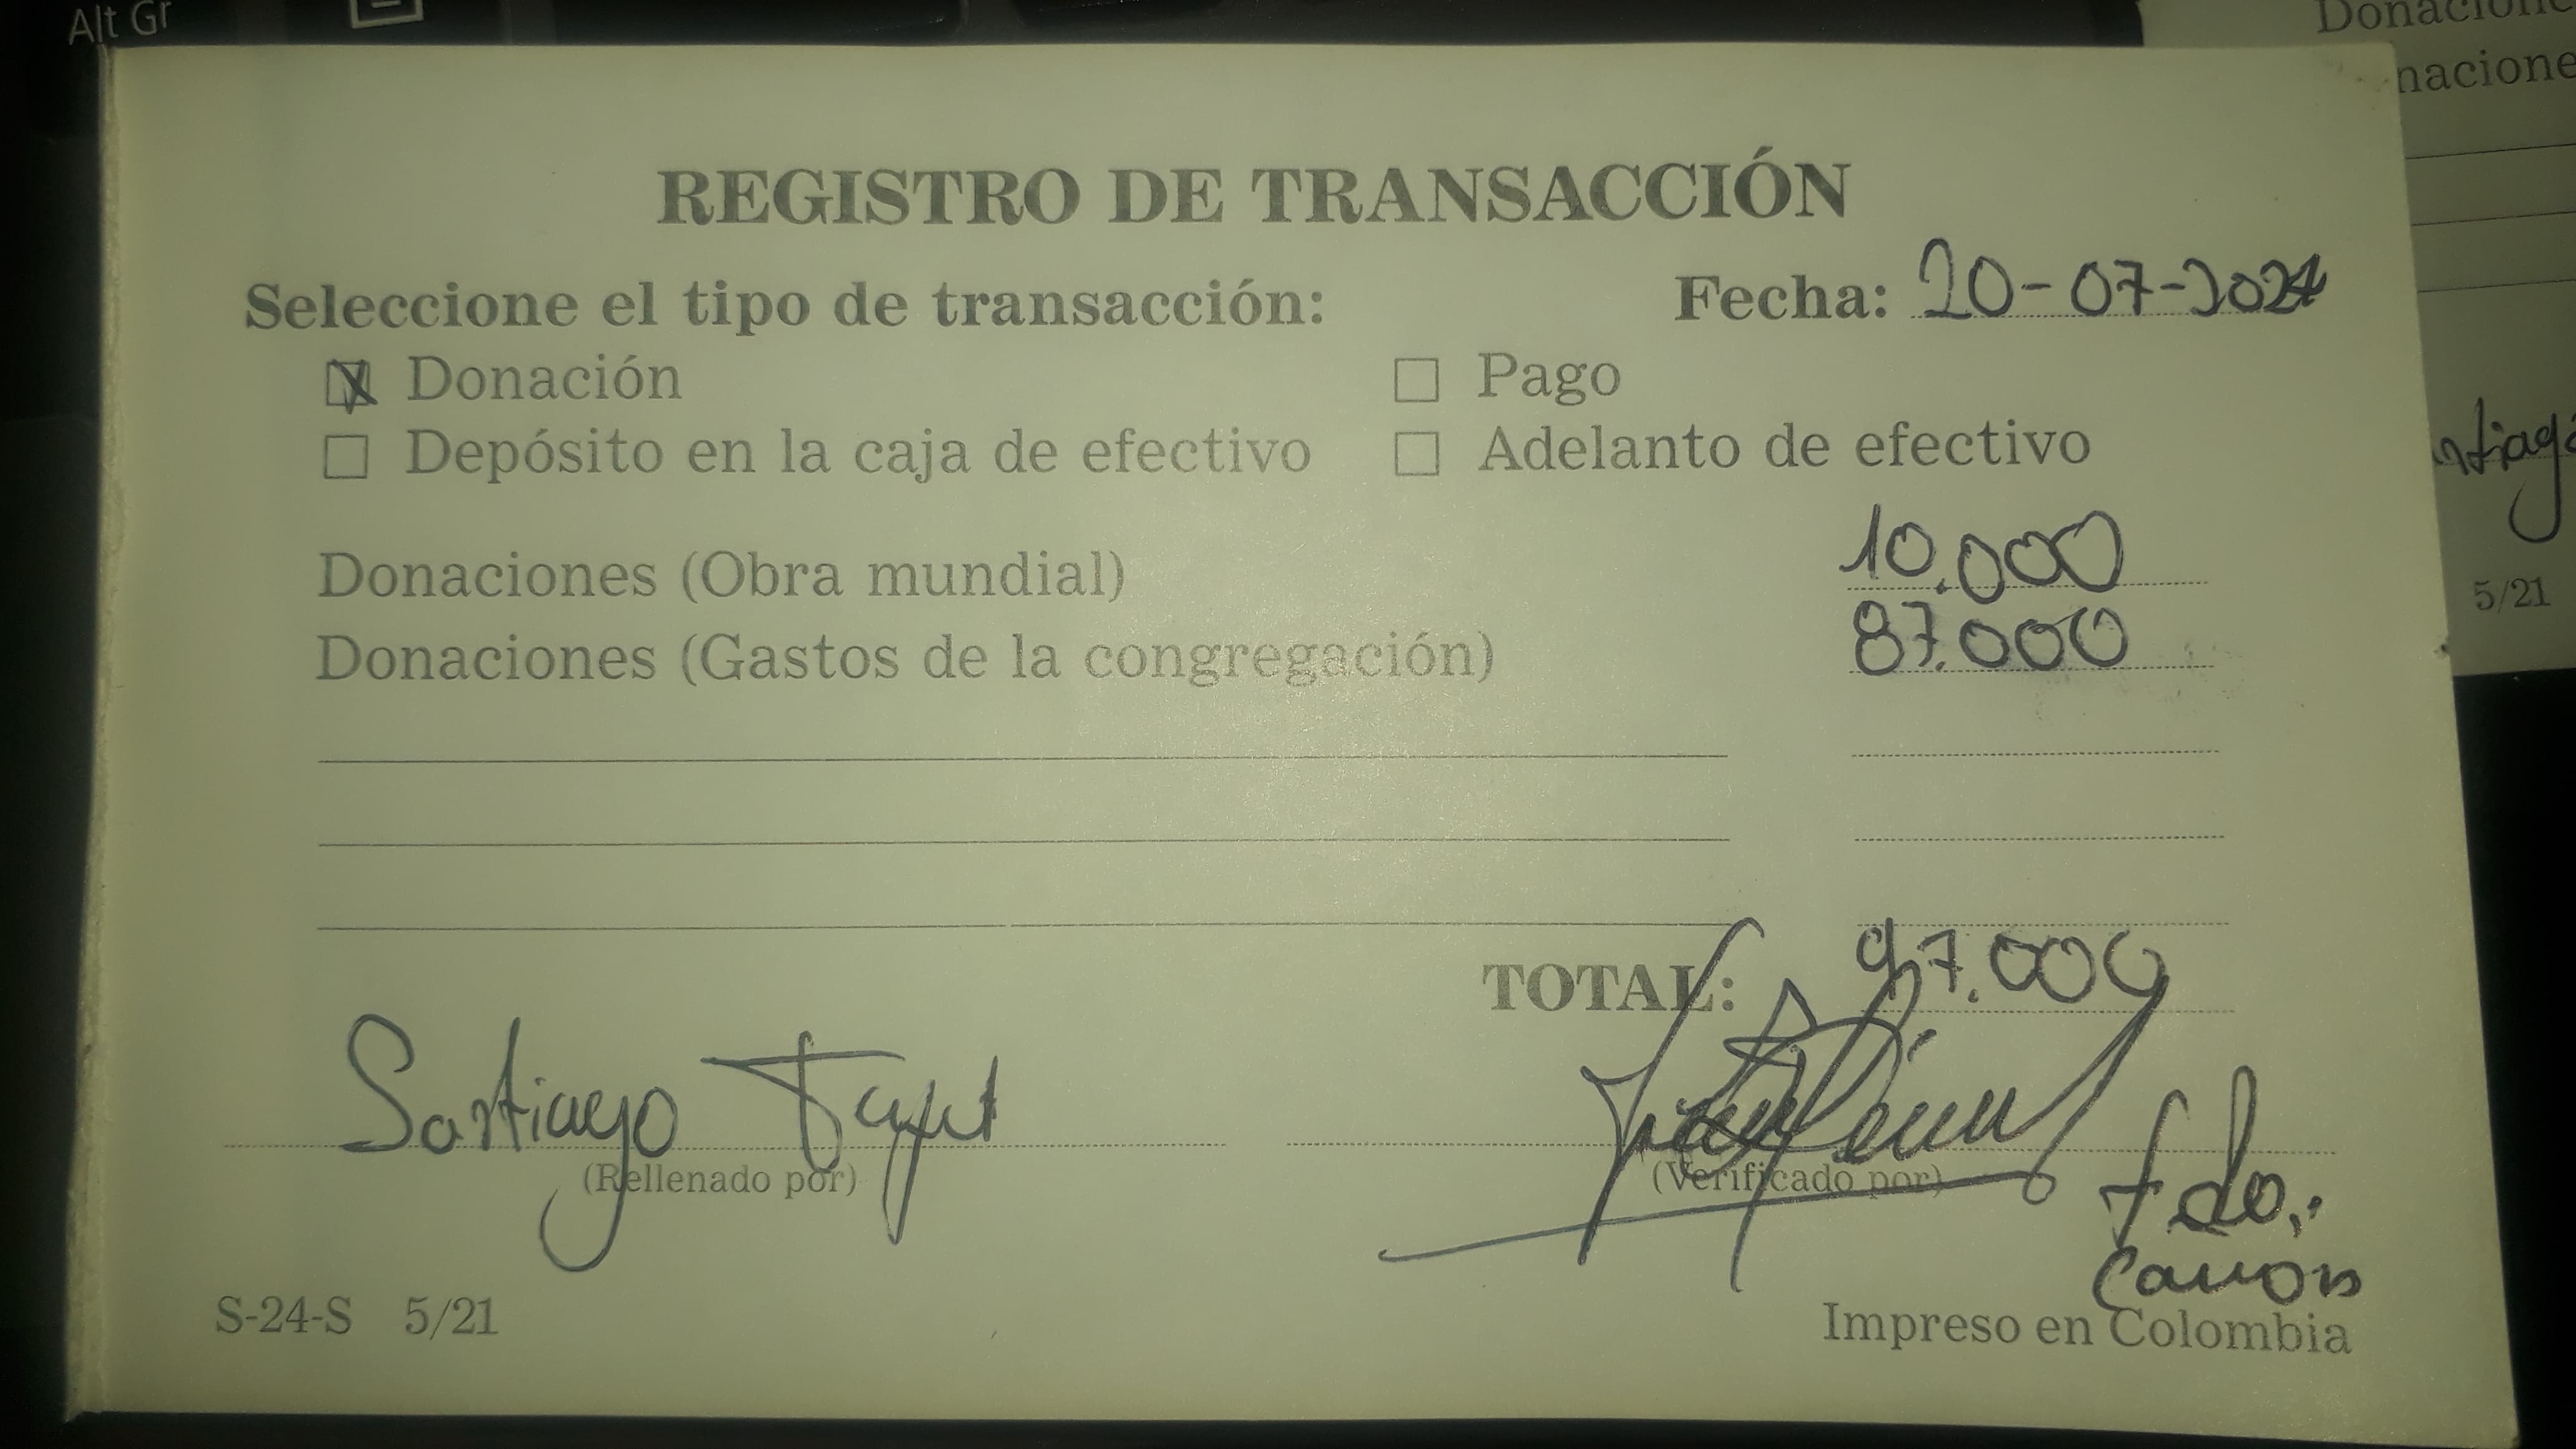 Alt Gr
Donacione
nacione
REGISTRO DE TRANSACCIÓN
Seleccione el tipo de transacción:
Fecha: 20-07-2024
Donación
Pago
Depósito en la caja de efectivo
Adelanto de efectivo
Donaciones (Obra mundial) 10.000
Donaciones (Gastos de la congregación) 87.000
TOTAL: 97.000
Santiago
(Rellenado por)
(Verificado por)
fdo.
S-24-S 5/21
Impreso en Colombia
ntiago
5/21